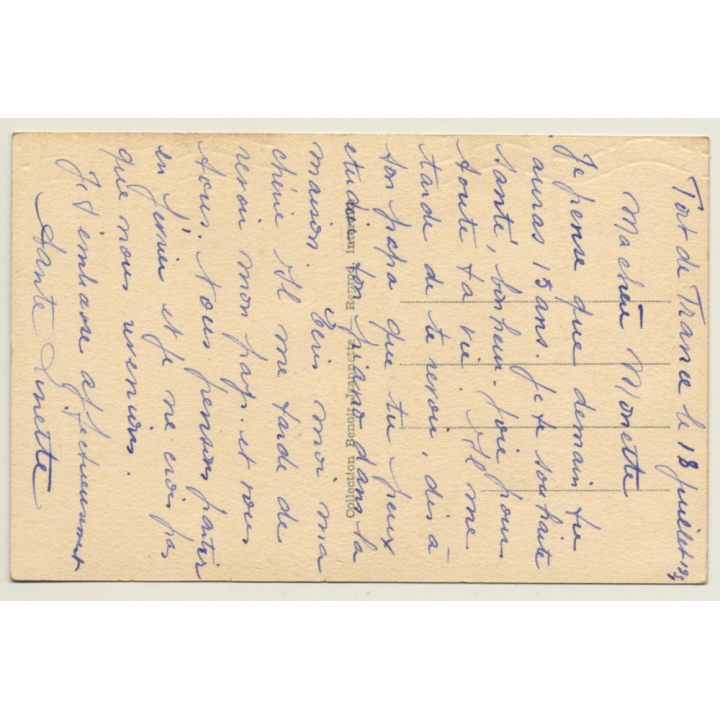 Fort de France le 18 juillet 195
Ma chère Monette
Je pense que demain tu
auras 15 ans. Je te souhaite
santé, bonheur. joie pour
toute ta vie. Il me
tarde de te revoir, dis à
ton papa que tu peux
etudier ton piano dans la
maison. Bèis moi ma
chérie Il me tarde de
revoir mon pays. et vous
tous. Nous pensons partir
en février et je ne crois pas
que nous revenions.
Je t'embrasse affectueusement
Tante Ginette
Collection Benoit-Jeannette — Reprod. interd.